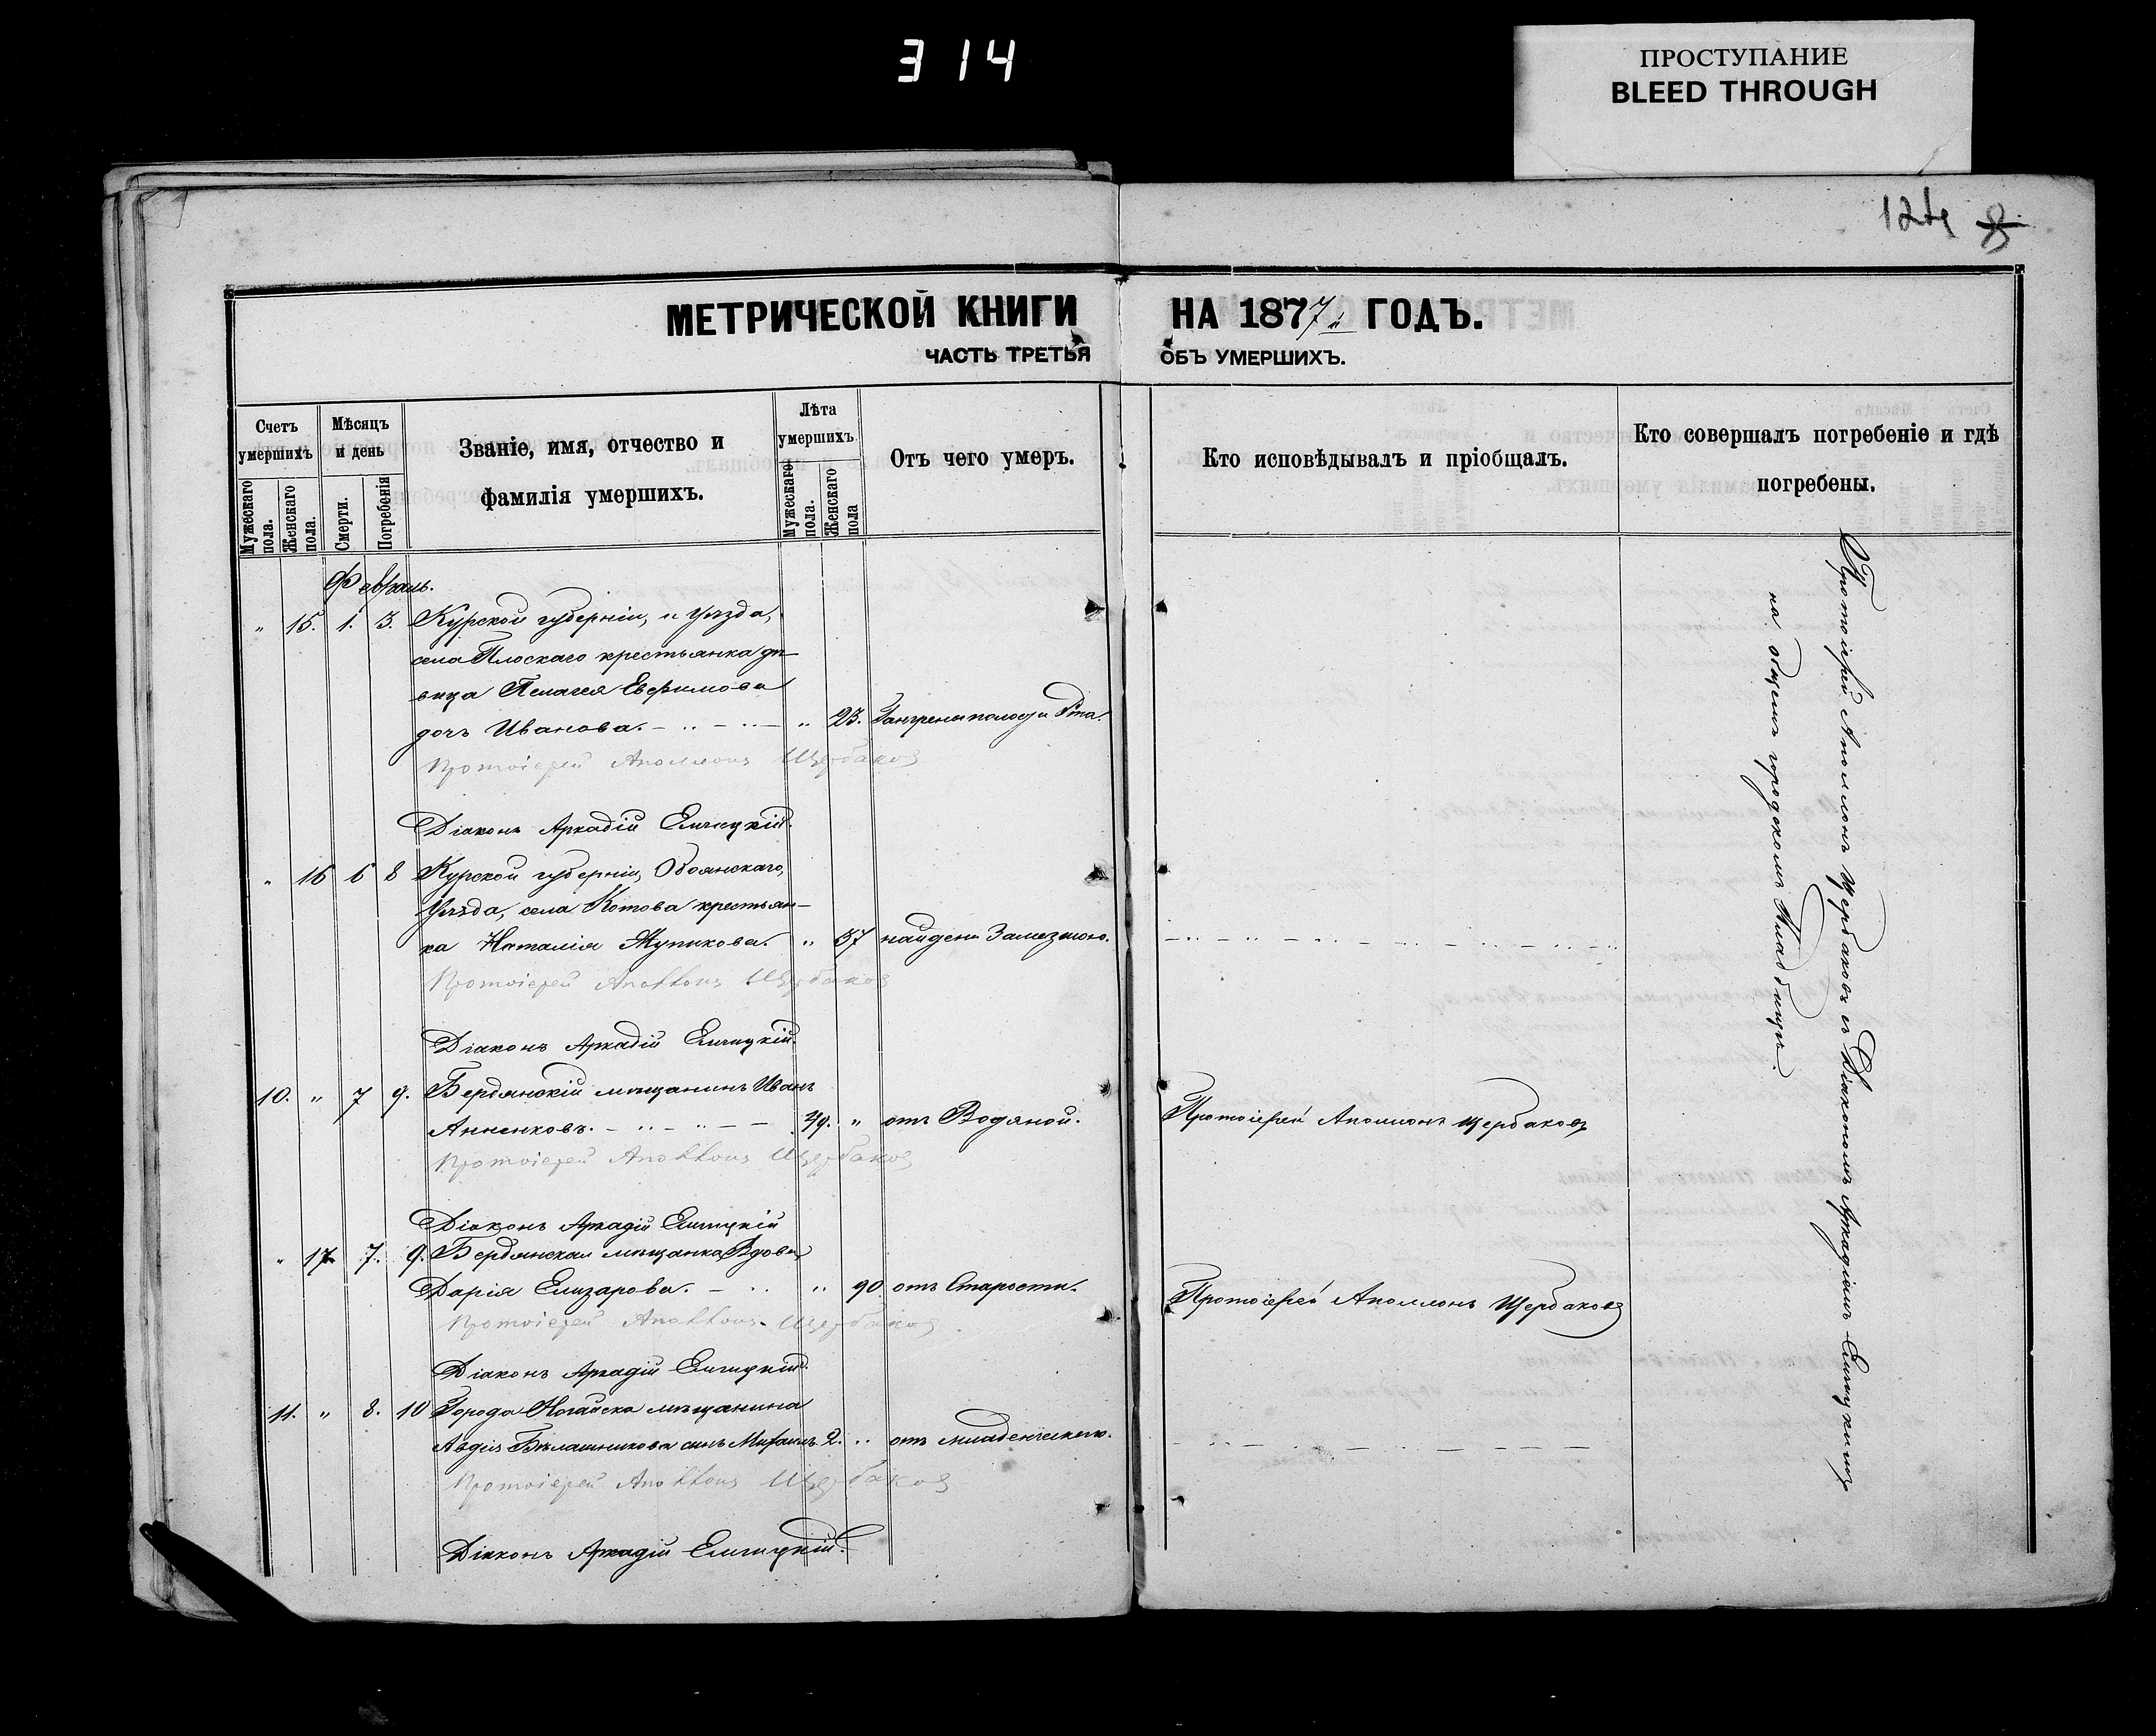 314
ПРОСТУПАНИЕ
BLEED THROUGH
124 8
МЕТРИЧЕСКОЙ КНИГИ НА 1877 ГОДЪ.
ЧАСТЬ ТРЕТЬЯ ОБЪ УМЕРШИХЪ.
Счетъ умершихъ
Мужескаго пола.
Женскаго пола.
Мѣсяцъ и день
Смерти.
Погребенія
Званіе, имя, отчество и фамилія умершихъ.
Лѣта умершихъ
Мужескаго пола.
Женскаго пола
Отъ чего умеръ.
Кто исповѣдывалъ и пріобщалъ.
Кто совершалъ погребеніе и гдѣ погребены.
Февраль.
" 15. 1. 3. Курской губерніи, и уѣзда,
села Плоскаго крестьянка дѣ-
вица Пелагея Евфимова
дочь Иванова. " 23. Гангрены полости рта.
Протоіерей Аполлонъ Щербаковъ
Діаконъ Аркадій
" 16 6 8 Курской губерніи, Обоянскаго,
Уѣзда, села Котова крестьян-
ка Наталія " 37 найдена Замерзшою.
Протоіерей Аполлонъ Щербаковъ
Діаконъ Аркадій
10. " 7 9. Бердянскій мѣщанинъ Иванъ
Анненковъ. 49. " отъ Водяной. Протоіерей Аполлонъ Щербаковъ
Протоіерей Аполлонъ Щербаковъ
Діаконъ Аркадій
" 17 7. 9. Бердянская мѣщанка Вдова
Дарія Елизарова. " 90 отъ Старости. Протоіерей Аполлонъ Щербаковъ
Протоіерей Аполлонъ Щербаковъ
Діаконъ Аркадій
11. " 8. 10 Города Ногайска мѣщанина
Авдія Бѣлашникова сынъ Михаилъ. 2. " отъ младенческаго.
Протоіерей Аполлонъ Щербаковъ
Діаконъ Аркадій
Протоіерей Аполлонъ Щербаковъ съ Діакономъ Аркадіемъ
на общемъ городскомъ Кладбищѣ.